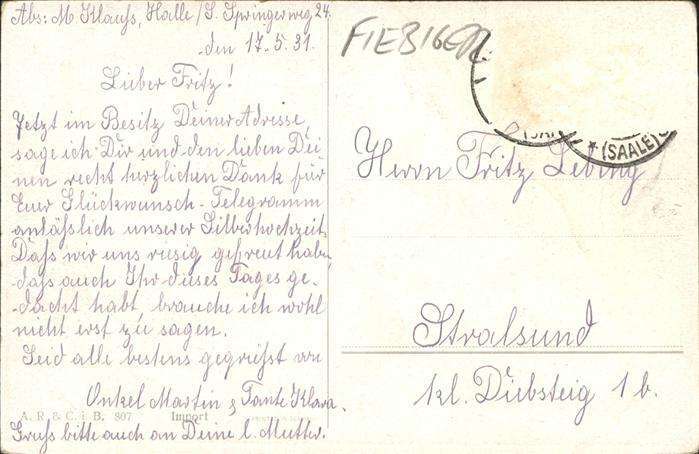 Abs: M Klauss, Halle/S. Springerweg 24.
den 17.5.31.
Lieber Fritz!
Jetzt im Besitz Deiner Adresse
sage ich Dir und den lieben Dei
nen recht herzlichen Dank für
Euer Glückwunsch-Telegramm
anläßlich unserer Silberhochzeit.
Daß wir uns riesig gefreut haben
daß auch Ihr dieses Tages ge-
dacht habt, brauche ich wohl
nicht erst zu sagen.
Seid alle bestens gegrüßt von
Onkel Martin & Tante Klara.
A. R. & C. i. B. 807 Import
Gruss bitte auch an Deine l. Mutter.
FIEBIGER
(SAALE)
Herrn Fritz
Stralsund
kl. Diebsteig 1b.